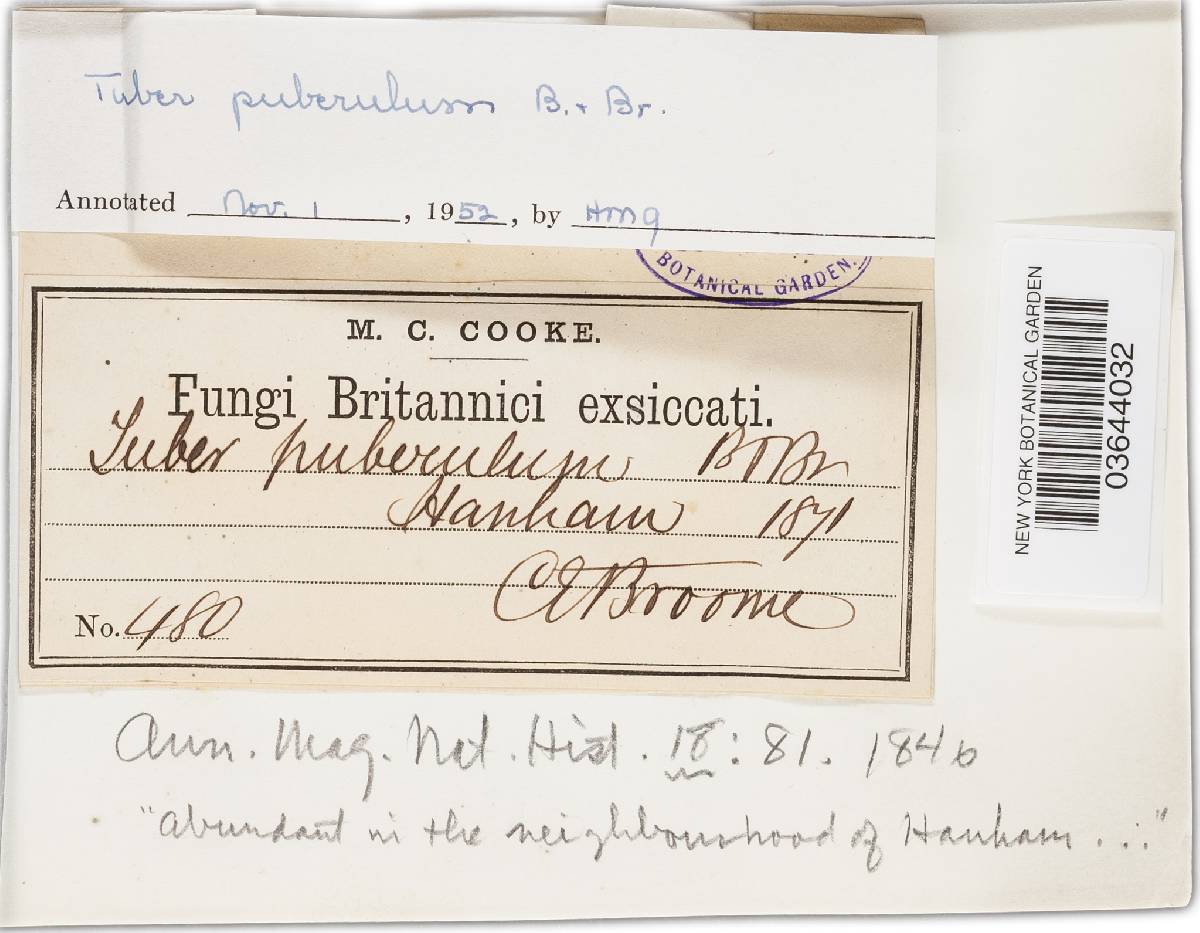 Tuber puberulum B. + Br.
Annotated Nov. 1, 1952, by HMG
BOTANICAL GARDEN.
M. C. COOKE.
Fungi Britannici exsiccati.
Tuber puberulum B & Br
Hanham 1871
C E Broome
No. 480
NEW YORK BOTANICAL GARDEN
03644032
Ann. Mag. Nat. Hist. 18: 81. 1846
"abundant in the neighbourhood of Hanham ..."